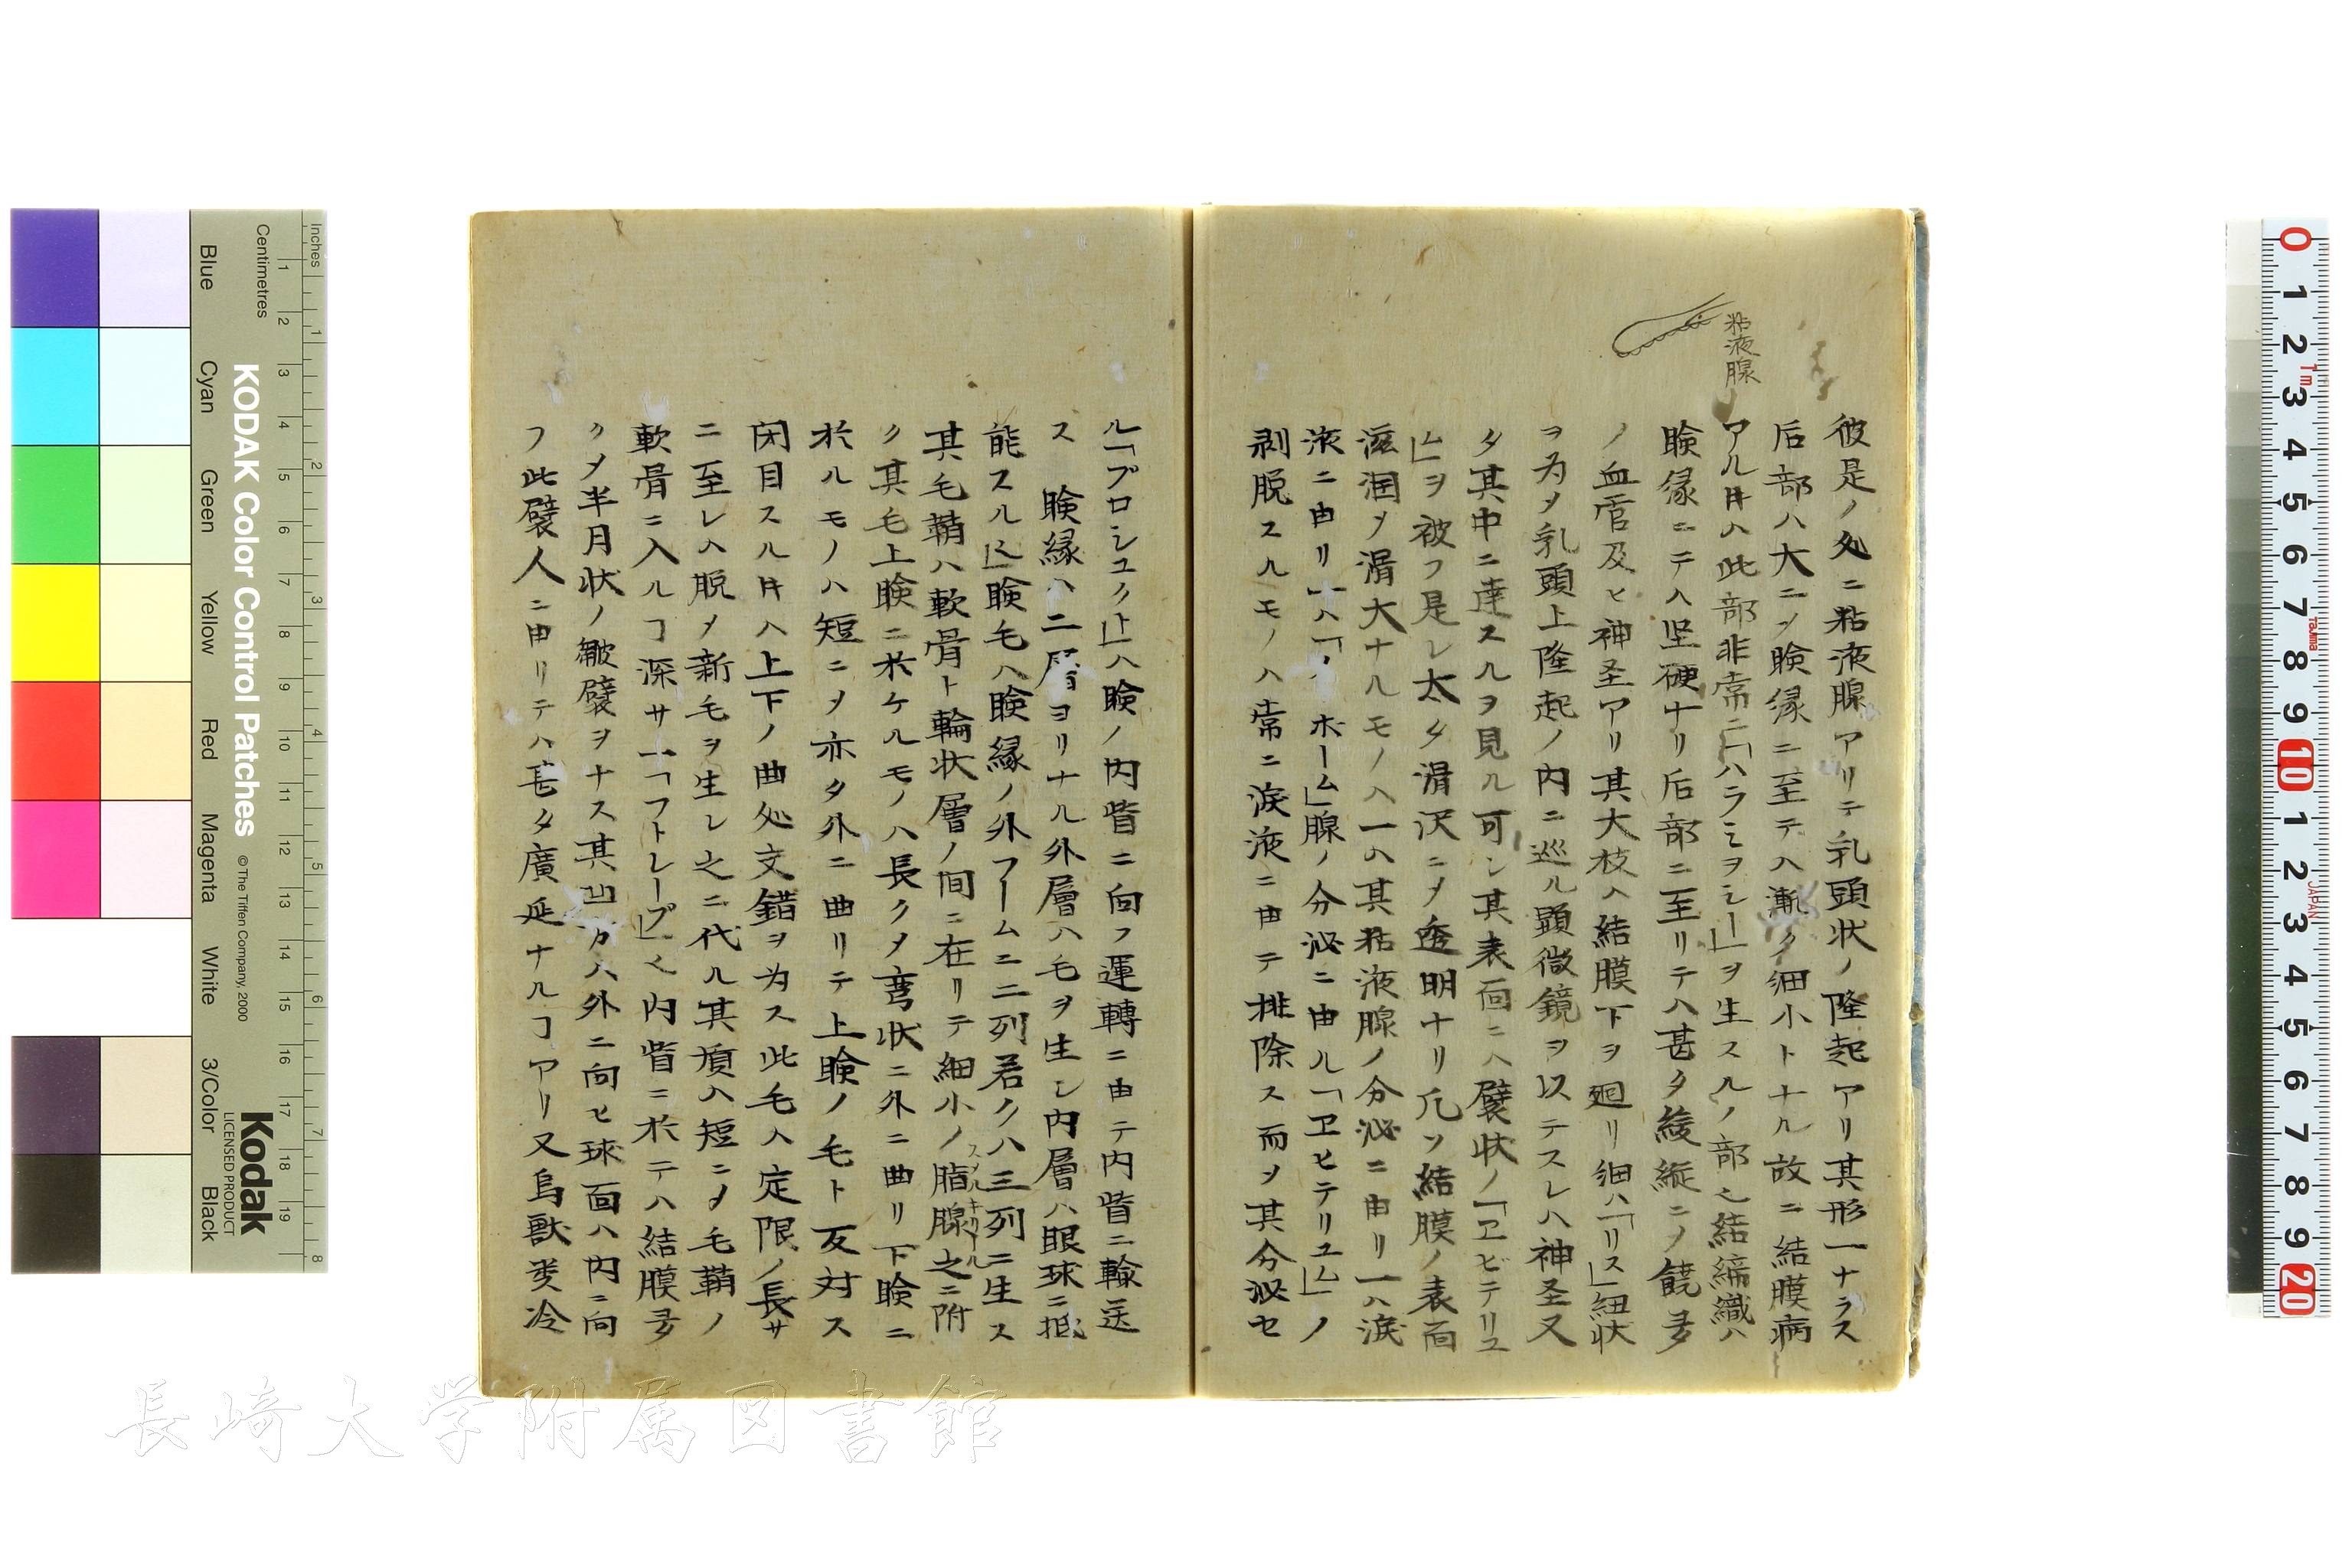 粘液腺
彼是ノ処ニ粘液腺アリテ乳頭状ノ隆起アリ其形一ナラス
后部ハ大ニヲ瞼縁ニ至テハ漸ク細小トナル故ニ結膜病
アル𪜈ハ此部非常ニ「ハラミヲミー」ヲ生スルノ部也結締織ハ
瞼縁ニテハ坚硬ナリ后部ニ至リテハ甚タ綾縦ニメ饒多
ノ血管及ヒ神圣アリ其大枝ハ結膜下ヲ廻リ細ハ「リス」紐状
ヲ为メ乳頭上隆起ノ内ニ巡ル顕微鏡ヲ以テスレハ神圣又
タ其中ニ達スルヲ見ル可シ其表面ニハ襞状ノ「ヱビテリユ
ム」ヲ被フ是レ太タ滑沢ニメ透明ナリ凡ソ結膜ノ表面
滋润メ滑大ナルモノハ一ハ其粘液腺ノ分泌ニ由リ一ハ淚
液ニ由リ一ハ「 ホーム」腺ノ分泌ニ由ル「ヱヒテリユム」ノ
剥脱スルモノハ常ニ淚液ニ由テ排除ス而メ其分泌セ
ル「プロシユクト」ハ瞼ノ内眥ニ向フ運轉ニ由テ内眥ニ輸送
ス 瞼縁ハ二层ヨリナル外層ハ毛ヲ生シ内層ハ眼球ニ抵
能スル 瞼毛ハ瞼縁ノ外フームニ二列若クハ三列ニ生ス
其毛鞘ハ軟骨ト輪状層ノ间ニ在リテ細小ノ脂腺之ニ附
ク其毛上瞼ニ於ケルモノハ長クメ弯状ニ外ニ曲リ下瞼ニ
於ルモノハ短ニメ亦タ外ニ曲リテ上瞼ノ毛ト反対ス
闭目スル𪜈ハ上下ノ曲処交錯ヲ为ス此毛ハ定限ノ長サ
ニ至レハ脱メ新毛ヲ生レ之ニ代ル其質ハ短ニメ毛鞘ノ
軟骨ニ入ルヿ深サ一「フトレープ」也内眥ニ於テハ結膜多
クメ半月状ノ皺襞ヲナス其凹方ハ外ニ向ヒ球面ハ内ニ向
フ此襞人ニ由リテハ甚タ廣延ナルヿアリ又鳥獣类冷
KODAK Color Control Patches
© The Tiffen Company, 2000
Kodak
LICENSED PRODUCT
Inches
Centimetres
Blue
Cyan
Green
Yellow
Red
Magenta
White
3/Color
Black
1 2 3 4 5 6 7 8 9 10 11 12 13 14 15 16 17 18 19
1 2 3 4 5 6 7 8
0 1 2 3 4 5 6 7 8 9 10 1 2 3 4 5 6 7 8 9 20
1m
Tajima
JAPAN
長崎大学附属図書館